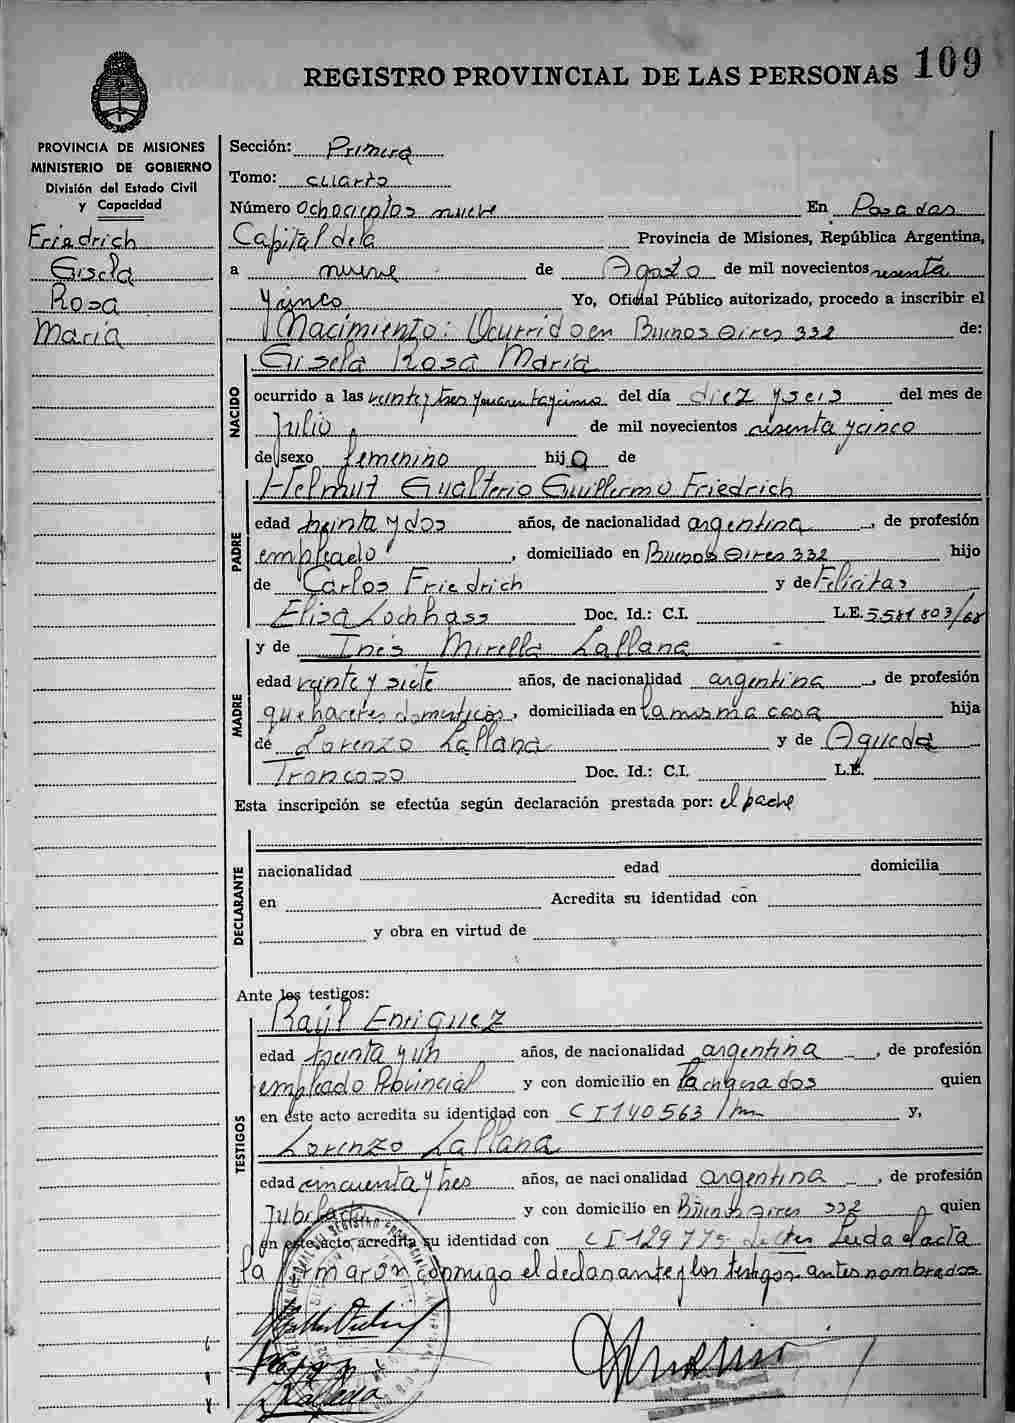 REGISTRO PROVINCIAL DE LAS PERSONAS 109
PROVINCIA DE MISIONES
MINISTERIO DE GOBIERNO
División del Estado Civil
y Capacidad
Friedrich
Gisela
Rosa
María
Sección: Primera
Tomo: cuarto
Número Ochocientos nueve En Posadas
Capital de la Provincia de Misiones, República Argentina,
a nueve de Agosto de mil novecientos sesenta
y cinco Yo, Oficial Público autorizado, procedo a inscribir el
Nacimiento: Ocurrido en Buenos Aires 332 de:
Gisela Rosa María
NACIDO
ocurrido a las veinte y tres y cuarenta y cinco del día diez y seis del mes de
Julio de mil novecientos sesenta y cinco
de sexo femenino hija de
Helmut Gualterio Guillermo Friedrich
PADRE
edad treinta y dos años, de nacionalidad argentina, de profesión
empleado, domiciliado en Buenos Aires 332 hijo
de Carlos Friedrich y de Felicitas
Elisa Lochhass Doc. Id.: C.I. L.E. 5581803/68
y de Inés Mirella Lallana
MADRE
edad veinte y siete años, de nacionalidad argentina, de profesión
quehaceres domesticos, domiciliada en la misma casa hija
de Lorenzo Lallana y de Agueda
Troncoso Doc. Id.: C.I. L.E.
Esta inscripción se efectúa según declaración prestada por: el padre
DECLARANTE
nacionalidad edad domicilia
en Acredita su identidad con
y obra en virtud de
Ante los testigos:
Raúl Enriquez
TESTIGOS
edad treinta y un años, de nacionalidad argentina, de profesión
empleado Provincial y con domicilio en la chacra dos quien
en este acto acredita su identidad con CI 140563 y,
Lorenzo Lallana
edad cincuenta y tres años, de nacionalidad argentina, de profesión
Jubilado y con domicilio en Buenos Aires 332 quien
en este acto acredita su identidad con CI 129775 Leida el acta
la firmaron conmigo el declarante y los testigos antes nombrados